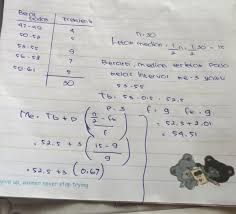 Berat badan Frekuensi
47-49 4
50-52 5
53-55 9
56-58 7
50-61 5
30
n=30
Letak median : 1/2 n = 1/2 . 30 = 15
Berarti, median terletak pada
kelas interval ke-3 yaitu
53-55
Tb = 53 - 0.5 = 52.5
P = 3 f = 9 fk = 9
Me = Tb + p ( n/2 - fk / f )
= 52.5 + 3 ( 15 - 9 / 9 )
= 52.5 + 3 (0.67)
= 52.5 + 2.01
= 54.51
give up, winner never stop trying